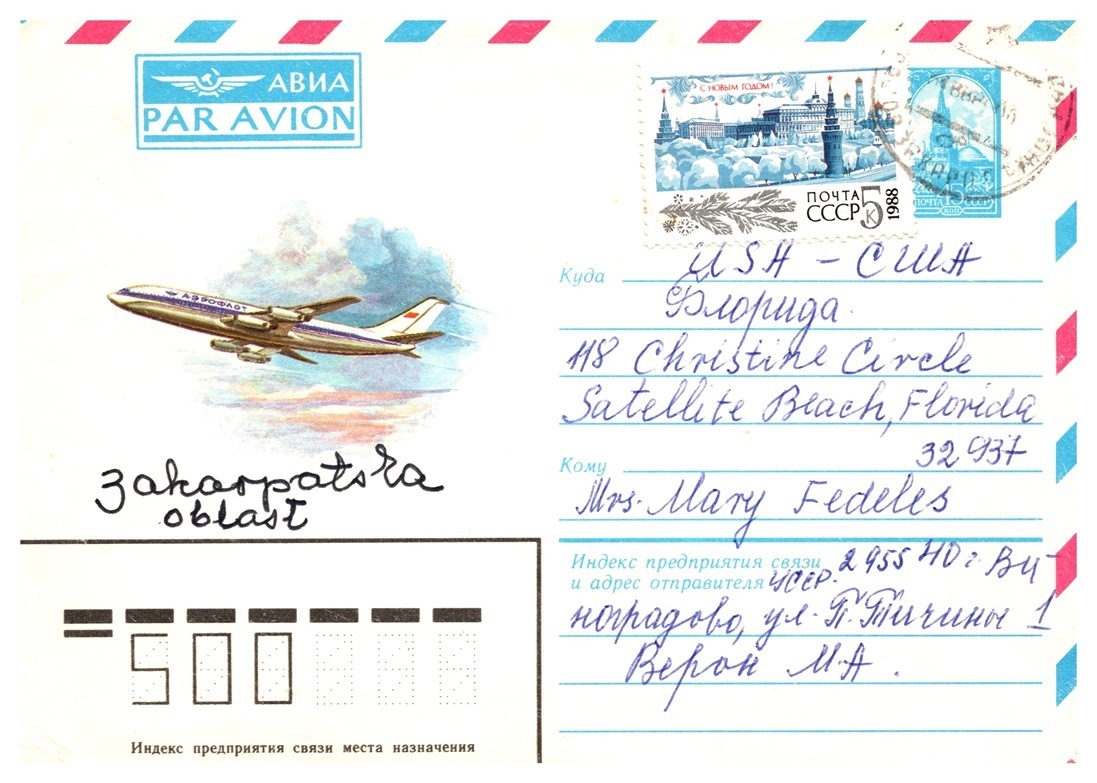 АВИА
PAR AVION
С НОВЫМ ГОДОМ!
ПОЧТА
СССР 5 К 1988
ПОЧТА 15 СССР
КОП
АЭРОФЛОТ
Куда USA - США
Флорида
118 Christine Circle
Satellite Beach, Florida
32937
Кому
Mrs. Mary Fedeles
Zakarpatska
oblast
Индекс предприятия связи
и адрес отправителя УССР. 295540 г. Ви-
ноградово, ул. П. Тичины 1
Верон М.А.
500
Индекс предприятия связи места назначения